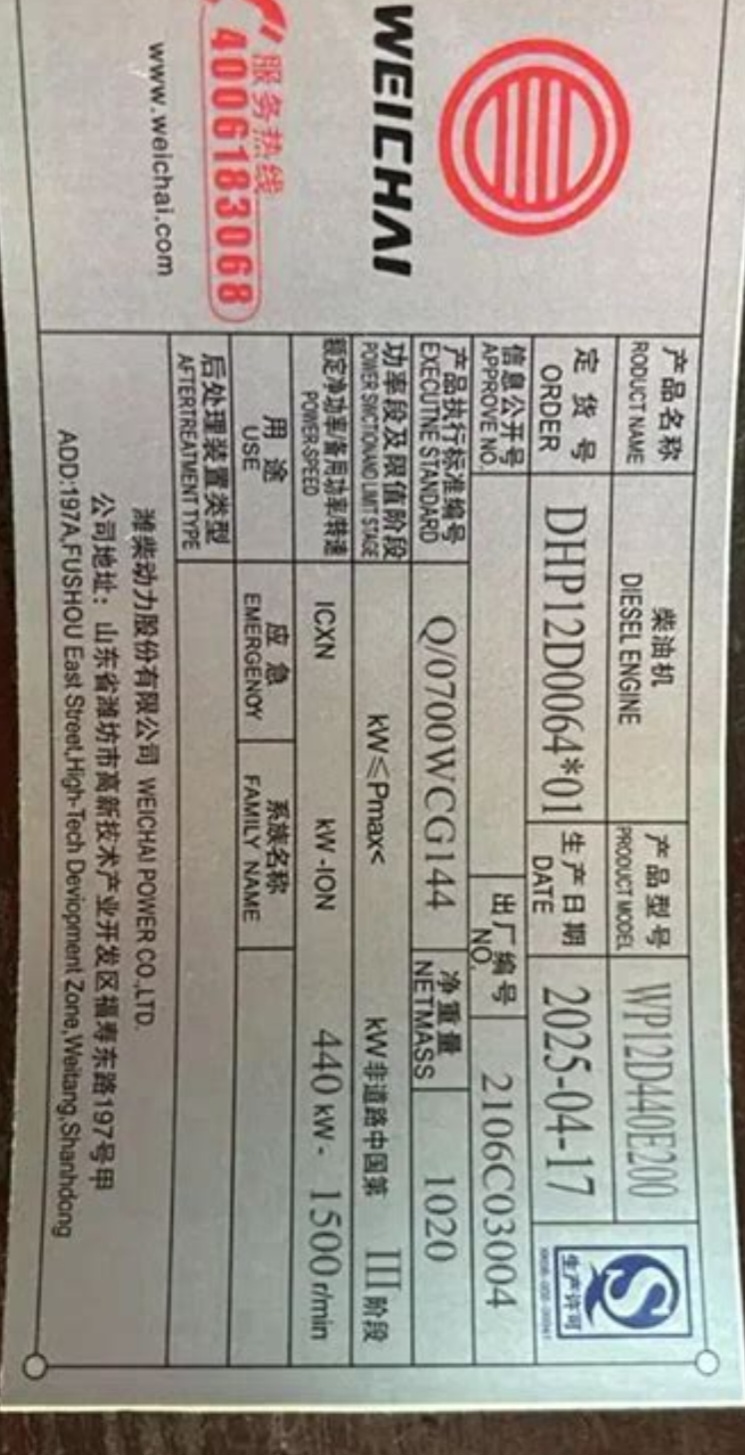 WEICHAI
服务热线
4006183068
www.weichai.com
产品名称
RODUCT NAME
柴油机
DIESEL ENGINE
产品型号
PRODUCT MODEL
WP12D440E200
定货号
ORDER
DHP12D0064*01
生产日期
DATE
2025-04-17
生产许可
信息公开号
APPROVE NO.
出厂编号
NO.
2106C03004
产品执行标准编号
EXECUTNE STANDARD
Q/0700WCG144
净重量
NETMASS
1020
功率段及限值阶段
POWER SWCTIONAND LIMIT STAGE
kW≤Pmax< kW非道路中国第 III 阶段
额定净功率/备用功率/转速
POWER-SPEED
ICXN kW -ION 440 kW - 1500 r/min
用途
USE
应急
EMERGENOY
系族名称
FAMILY NAME
后处理装置类型
AFTERTREATMENT TYPE
潍柴动力股份有限公司 WEICHAI POWER CO.,LTD.
公司地址：山东省潍坊市高新技术产业开发区福寿东路197号甲
ADD:197A,FUSHOU East Street,High-Tech Deviopment Zone,Weitang,Shanhdong